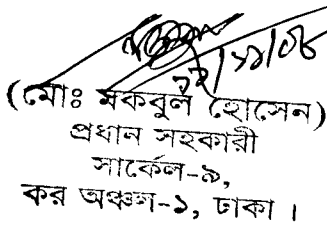 (মোঃ মকবুল হোসেন)
প্রধান সহকারী
সার্কেল-৯,
কর অঞ্চল-১, ঢাকা ।